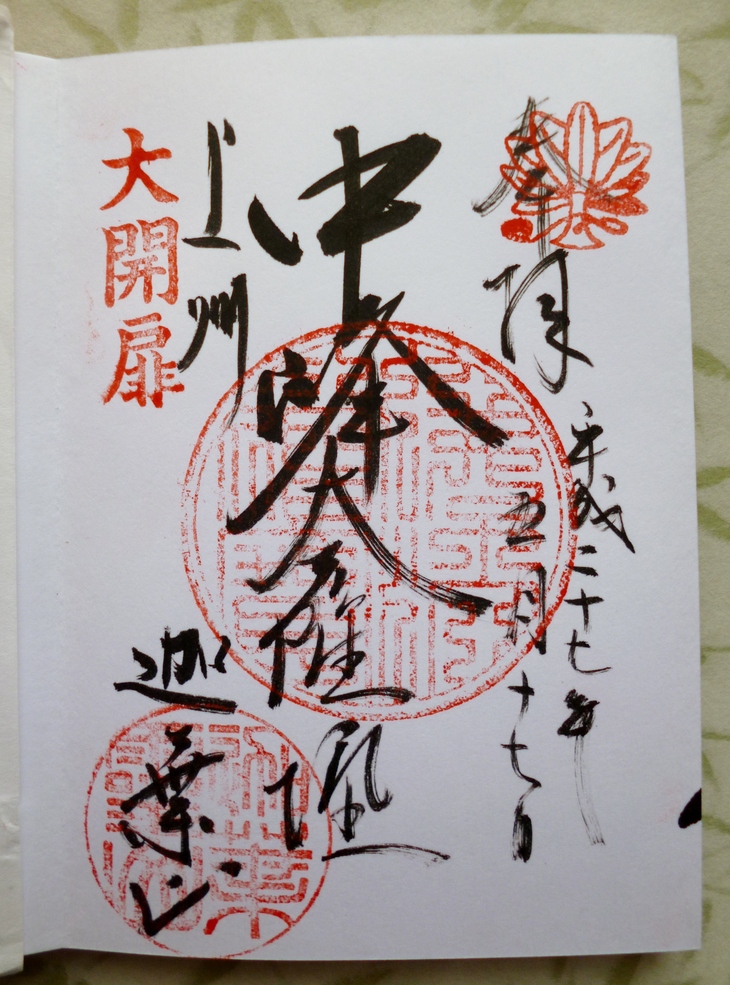 奉拝
平成二十七年
五月十七日
中峯大權現
上州
迦葉山
大開扉